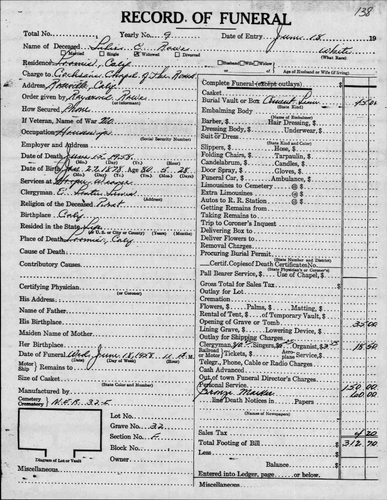 138
RECORD OF FUNERAL
Total No. Yearly No. 9 Date of Entry June 15 19
Name of Deceased Lillian C. Rowe White
Married Single Widowed Divorced (What Race)
Residence Loomis, Calif. Husband Wife Widow
of Age of Husband or Wife (if living)
Charge to
Address Roseville Calif.
Order given by Raymond Rowe
(or informant)
How Secured Phone
If Veteran, Name of War No
Occupation Housewife
(Social Security Number)
Employer and Address
Date of Death June 15 1958
(Mo.) (Day) (Year) (Hour)
Date of Birth 27 1878 Age 80 5 28
(Mo.) (Day) (Year) (Yrs.) (Mos.) (Days)
Services at
Clergyman
Religion of the Deceased Prot.
Birthplace Calif
Resided in the State Life
(or U. S. or City or County) (Years)
Place of Death Loomis, Calif
Cause of Death
Contributory Causes
Certifying Physician
(or Coroner)
His Address
Name of Father
His Birthplace
Maiden Name of Mother
Her Birthplace
Date of Funeral Wed. June 18, 1958 11 A.M.
(Day of Week) (Hour)
Motor Ship Remains to
Size of Casket
(State Color and Number)
Manufactured by
Cemetery Crematory N.E.R. 32-F
Lot No.
Grave No. 32
Section No. F
Block No.
Owner
Diagram of Lot or Vault
Miscellaneous
Complete Funeral (except outlays)
Casket
Burial Vault or Box 45.00
(State Kind)
Embalming Body
(Name of Embalmer)
Barber, $ Hair Dressing, $
Dressing Body, $ Underwear, $
Suit or Dress
(State Kind and Color)
Slippers, $ Hose, $
Folding Chairs, $ Tarpaulin, $
Candelabrum, $ Candles, $
Door Spray, $ Gloves, $
Funeral Car, $ Ambulance, $
Limousines to Cemetery @ $
Extra Limousines @ $
Autos to R. R. Station @ $
Getting Remains from
Taking Remains to
Trip to Coroner's Inquest
Delivering Box to
Deliver Flowers to
Removal Charges
(State Member and District)
Certif. Copies of Death Certificate No.
(State Physician's or Coroner's)
Pall Bearer Service, $ Use of Chapel, $
Gross Total for Sales Tax
Outlay for Lot
Cremation
Flowers, $ Palms, $ Matting, $
Rental of Tent, $ of Temporary Vault, $
Opening of Grave or Tomb 35.00
Lining Grave, $ Lowering Device, $
Outlay for Shipping Charges
Clergyman, $ Singers, $ Organist, $ 18.50
Railroad or Motor Tickets, $ Aeroplane Service, $
Telegr., Phone, Cable or Radio Charges
Cash Advanced
Out of town Funeral Director's Charges
Personal Service 150.00
Bronze Marker 60.00
line Death Notices in Papers
(Names of Newspapers)
Sales Tax 4.20
Total Footing of Bill 312 70
Less
Balance
Entered into Ledger, page or below.
Miscellaneous